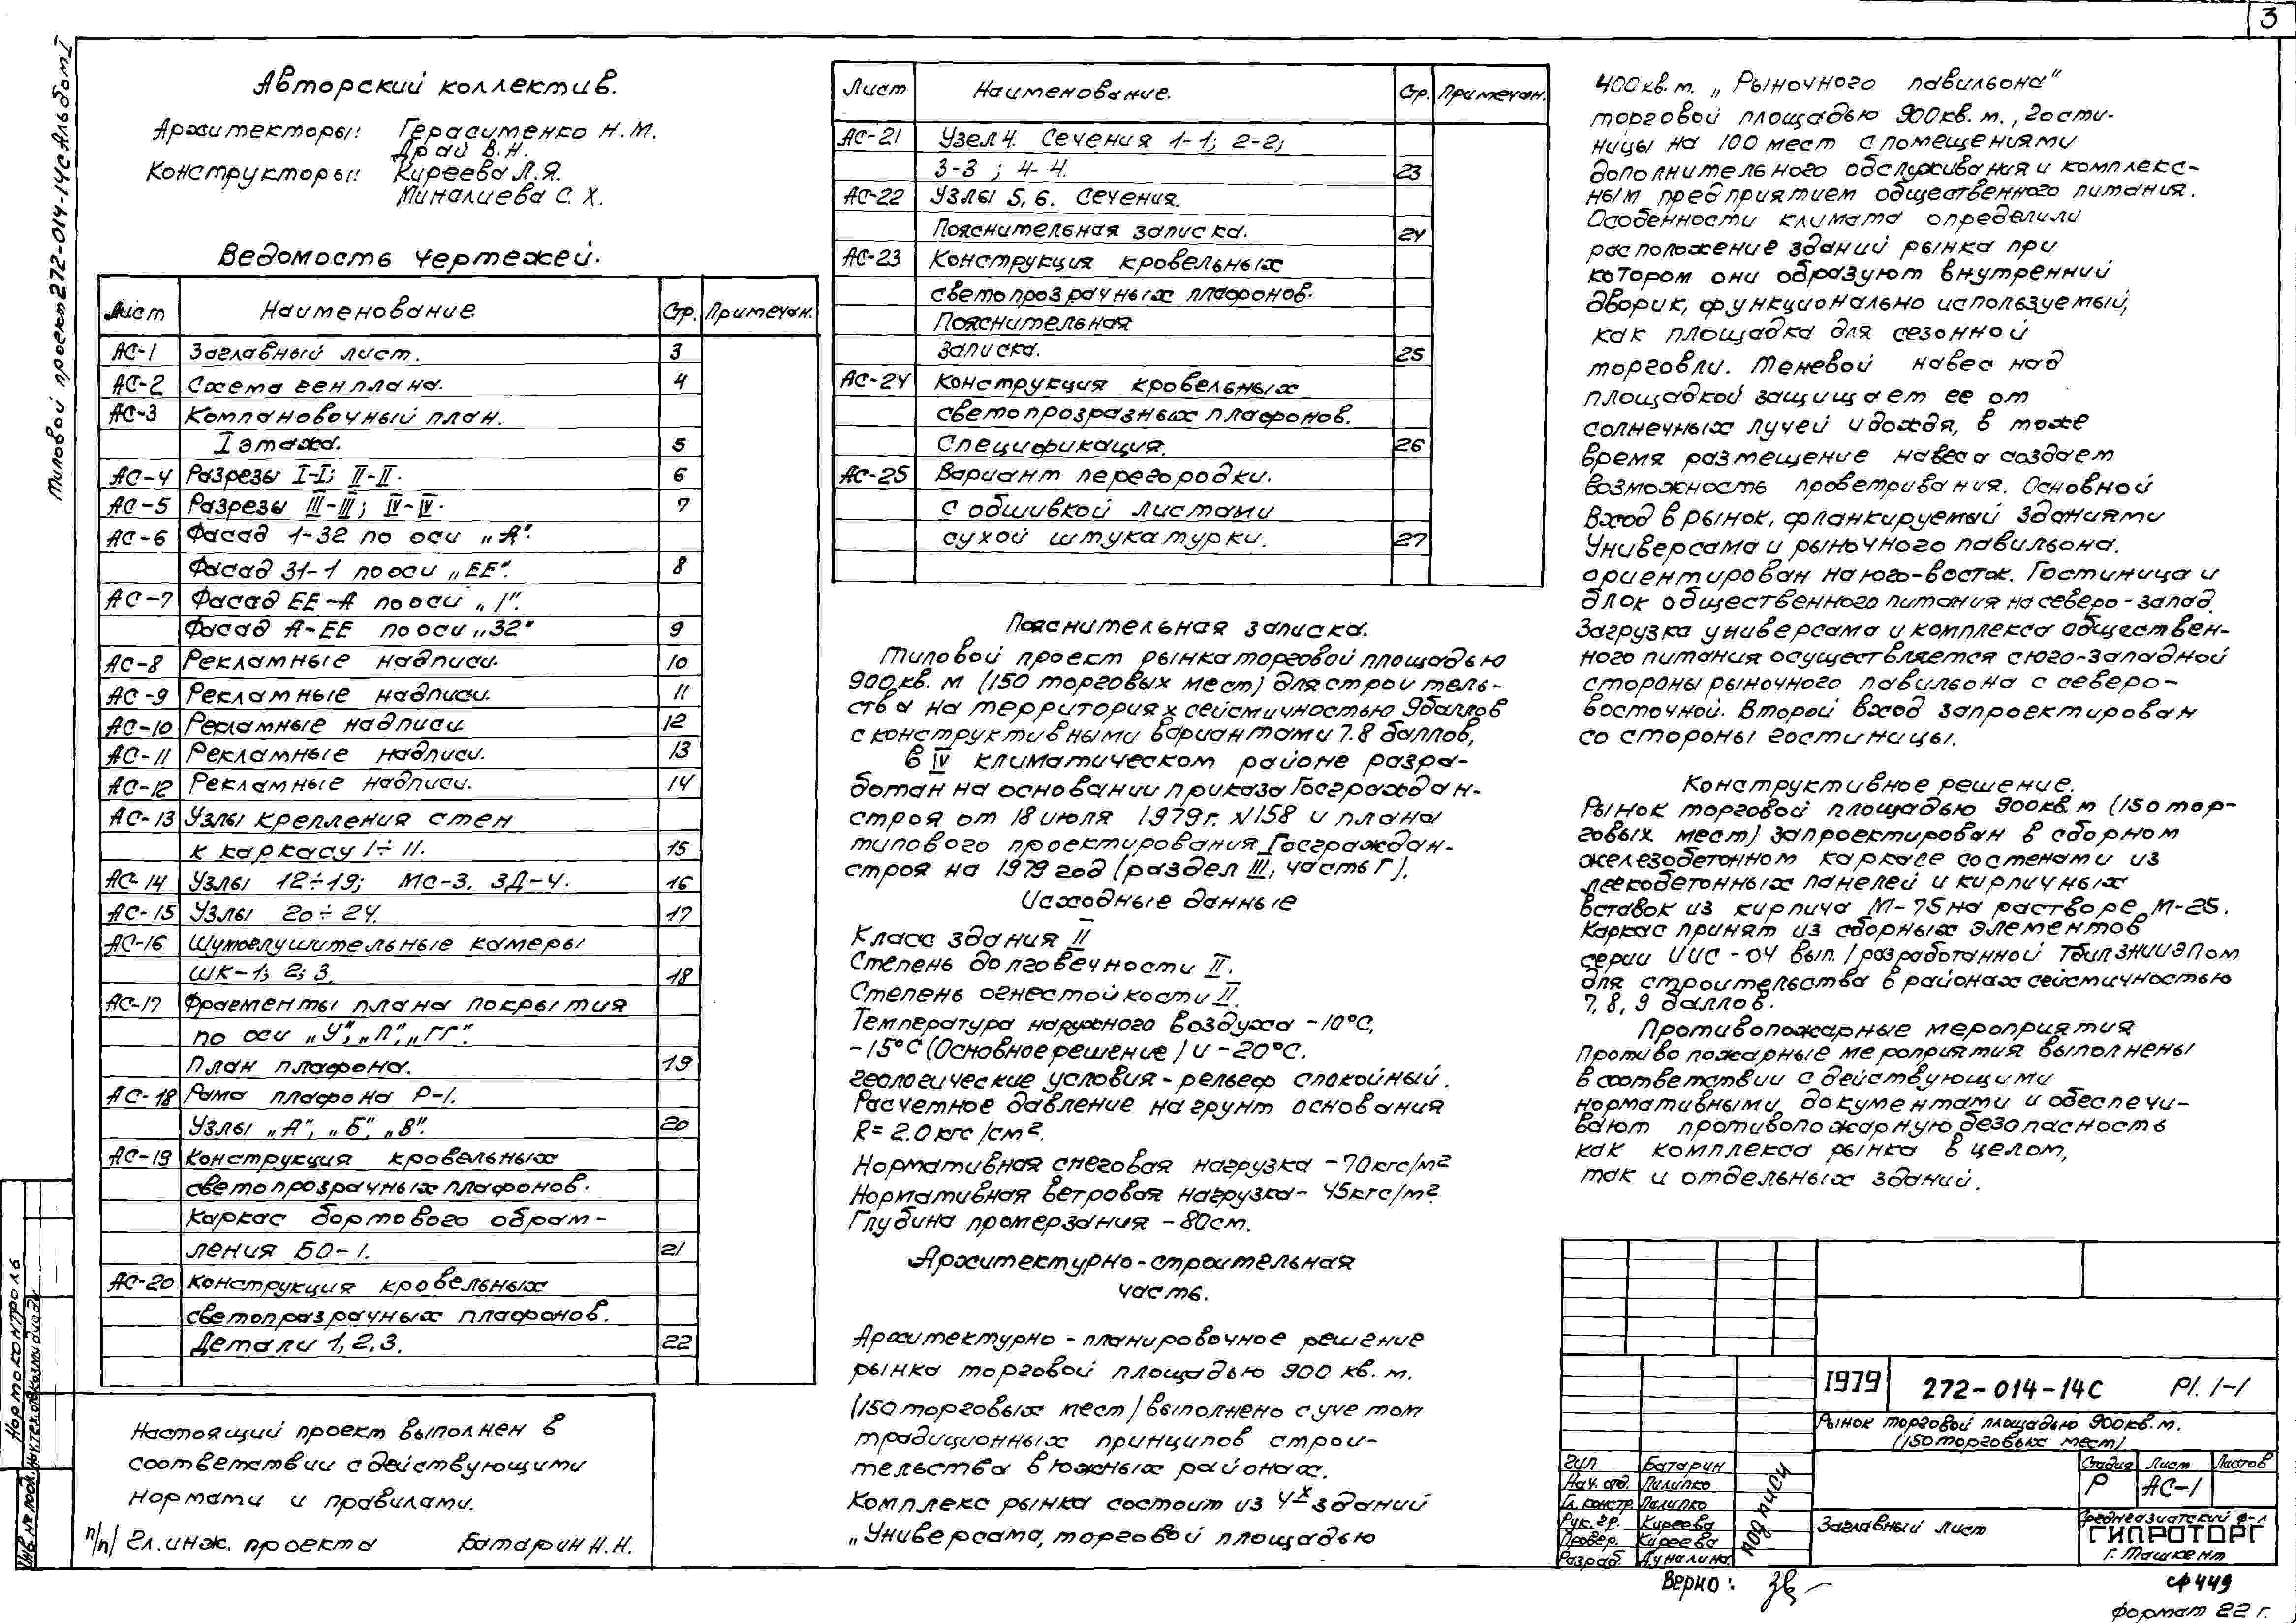 3
Типовой проект 272-014-14С Альбом I
Авторский коллектив.
Архитекторы: Герасименко Н.М.
Драй В.Н.
Конструкторы: Киреева Л.Я.
Миналиева С.Х.
Ведомость чертежей.
Лист Наименование Стр. Примечан.
АС-1 Заглавный лист. 3
АС-2 Схема генплана. 4
АС-3 Компановочный план.
I этажа. 5
АС-4 Разрезы I-I; II-II. 6
АС-5 Разрезы III-III; IV-IV. 7
АС-6 Фасад 1-32 по оси „А".
Фасад 31-1 по оси „ЕЕ". 8
АС-7 Фасад ЕЕ-А по оси „1".
Фасад А-ЕЕ по оси „32" 9
АС-8 Рекламные надписи. 10
АС-9 Рекламные надписи. 11
АС-10 Рекламные надписи 12
АС-11 Рекламные надписи. 13
АС-12 Рекламные надписи. 14
АС-13 Узлы крепления стен
к каркасу 1÷11. 15
АС-14 Узлы 12÷19; МС-3. ЗД-4. 16
АС-15 Узлы 20÷24. 17
АС-16 Шумоглушительные камеры
ШК-1; 2; 3. 18
АС-17 Фрагменты плана покрытия
по оси „У", „Л", „ГГ".
План плафона. 19
АС-18 Рама плафона Р-1.
Узлы „А", „Б", „В". 20
АС-19 Конструкция кровельных
светопрозрачных плафонов.
Каркас бортового обрам-
ления БО-1. 21
АС-20 Конструкция кровельных
светопразрачных плафонов.
Детали 1, 2, 3. 22
Настоящий проект выполнен в
соответствии с действующими
нормами и правилами.
п/п/ Гл. инж. проекта Батарин Н.Н.
Нормоконтроль
Инв. № подл.
Лист Наименование. Стр. Примечан.
АС-21 Узел 4. Сечения 1-1; 2-2;
3-3; 4-4. 23
АС-22 Узлы 5, 6. Сечения.
Пояснительная записка. 24
АС-23 Конструкция кровельных
светопрозрачных плафонов.
Пояснительная
записка. 25
АС-24 Конструкция кровельных
светопрозразных плафонов.
Спецификация. 26
АС-25 Вариант перегородки.
с обшивкой листами
сухой штукатурки. 27
Пояснительная записка.
Типовой проект рынка торговой площадью
900 кв. м (150 торговых мест) для строитель-
ства на территориях сейсмичностью 9 баллов
с конструктивными вариантами 7.8 баллов,
в IV климатическом районе разра-
ботан на основании приказа Госграждан-
строя от 18 июля 1979г. №158 и плана
типового проектирования Госграждан-
строя на 1979 год (раздел III, часть Г).
Исходные данные
Класс здания II
Степень долговечности II.
Степень огнестойкости II.
Температура наружного воздуха -10°С,
-15°С (Основное решение) и -20°С.
Геологические условия - рельеф спокойный.
Расчетное давление на грунт основания
R= 2.0 кгс/см².
Нормативная снеговая нагрузка -70кгс/м²
Нормативная ветровая нагрузка- 45кгс/м²
Глубина промерзания -80см.
Архитектурно-строительная
часть.
Архитектурно-планировочное решение
рынка торговой площадью 900 кв. м.
(150 торговых мест) выполнено с учетом
традиционных принципов строи-
тельства в южных районах.
Комплекс рынка состоит из 4х зданий
„Универсама, торговой площадью
400 кв. м. „Рыночного павильона"
торговой площадью 900кв. м., гости-
ницы на 100 мест с помещениями
дополнительного обслуживания и комплекс-
ным предприятием общественного питания.
Особенности климата определили
расположение зданий рынка при
котором они образуют внутренний
дворик, функционально используемый,
как площадка для сезонной
торговли. Теневой навес над
площадкой защищает ее от
солнечных лучей и дождя, в тоже
время размещение навеса создает
возможность проветривания. Основной
вход в рынок, фланкируемый зданиями
Универсама и рыночного павильона.
ориентирован на юго-восток. Гостиница и
блок общественного питания на северо-запад.
Загрузка универсама и комплекса обществен-
ного питания осуществляется с юго-западной
стороны рыночного павильона с северо-
восточной. Второй вход запроектирован
со стороны гостиницы.
Конструктивное решение.
Рынок торговой площадью 900кв. м (150 тор-
говых мест) запроектирован в сборном
железобетонном каркасе со стенами из
легкобетонных панелей и кирпичных
вставок из кирпича М-75 на растворе М-25.
Каркас принят из сборных элементов
серии ИИС-04 вып. 1 разработанной ТбилЗНИИЭПом
для строительства в районах сейсмичностью
7, 8, 9 баллов.
Противопожарные мероприятия
Противопожарные мероприятия выполнены
в соответствии с действующими
нормативными документами и обеспечи-
вают противопожарную безопасность
как комплекса рынка в целом,
так и отдельных зданий.
1979 272-014-14С Р1. 1-1
Рынок торговой площадью 900кв. м.
(150 торговых мест)
ГИП Батарин
Нач. отд. Пилипко
Гл. констр. Пилипко
Рук. гр. Киреева
Провер. Киреева
Разраб. Дуналина
подписи
Стадия Лист Листов
Р АС-1
Заглавный лист
Среднеазиатский ф-л
ГИПРОТОРГ
г. Ташкент
Верно:
сф 449
Формат 22 г.